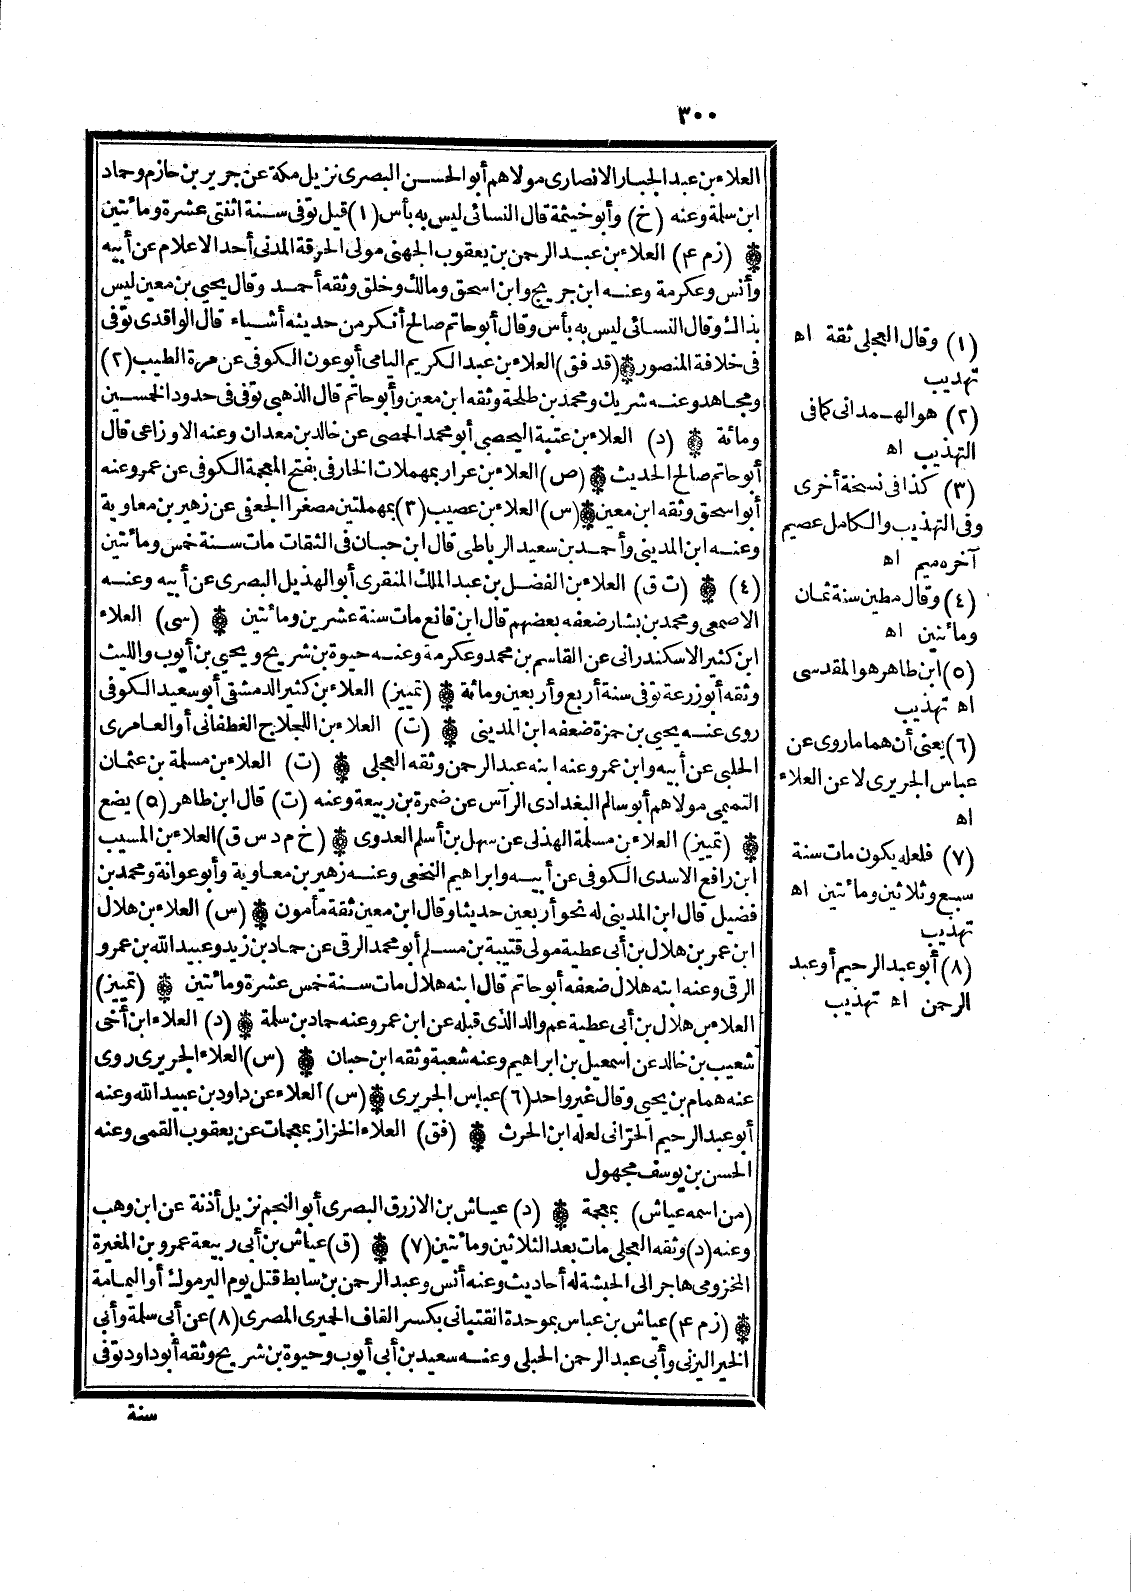 ٣٠٠
العلاء بن عبد الجبار الانصارى مولاهم أبو الحسن البصرى نزيل مكة عن جرير بن حازم وحماد
ابن سلمة وعنه (خ) وأبو خيثمة قال النسائى ليس به بأس (١) قيل توفى سنة اثنتى عشرة ومائتين
۞ (ز م ٤) العلاء بن عبد الرحمن بن يعقوب الجهنى مولى الحرقة المدنى أحد الاعلام عن أبيه
وأنس وعكرمة وعنه ابن جريج وابن اسحق ومالك وخلق وثقه أحمد وقال يحيى بن معين ليس
بذاك وقال النسائى ليس به بأس وقال أبو حاتم صالح أنكر من حديثه أشياء قال الواقدى توفى
فى خلافة المنصور ۞ (قد فق) العلاء بن عبد الكريم اليامى أبو عون الكوفى عن مرة الطيب (٢)
ومجاهد وعنه شريك ومحمد بن طلحة وثقه ابن معين وأبو حاتم قال الذهبى توفى فى حدود الخمسين
ومائة ۞ (د) العلاء بن عتبة اليحصبى أبو محمد الحمصى عن خالد بن معدان وعنه الاوزاعى قال
أبو حاتم صالح الحديث ۞ (ص) العلاء بن عرار بمهملات الخارفى بفتح المعجمة الكوفى عن عمر وعنه
أبو اسحق وثقه ابن معين ۞ (س) العلاء بن عصيب (٣) بمهملتين مصغرا الجعفى عن زهير بن معاوية
وعنه ابن المدينى وأحمد بن سعيد الرباطى قال ابن حبان فى الثقات مات سنة خمس ومائتين
(٤) ۞ (ت ق) العلاء بن الفضل بن عبد الملك المنقرى أبو الهذيل البصرى عن أبيه وعنه
الاصمعى ومحمد بن بشار ضعفه بعضهم قال ابن قانع مات سنة عشرين ومائتين ۞ (سى) العلاء
ابن كثير الاسكندرانى عن القاسم بن محمد وعكرمة وعنه حيوة بن شريح ويحيى بن أيوب والليث
وثقه أبو زرعة توفى سنة أربع وأربعين ومائة ۞ (تمييز) العلاء بن كثير الدمشقى أبو سعيد الكوفى
روى عنه يحيى بن حمزة ضعفه ابن المدينى ۞ (ت) العلاء بن اللجلاج الغطفانى أو العامرى
الحلبى عن أبيه وابن عمر وعنه ابنه عبد الرحمن وثقه العجلى ۞ (ت) العلاء بن مسلمة بن عثمان
التميمى مولاهم أبو سالم البغدادى الرآس عن ضمرة بن ربيعة وعنه (ت) قال ابن طاهر (٥) يضع
۞ (تمييز) العلاء بن مسلمة الهذلى عن سهل بن أسلم العدوى ۞ (خ م د س ق) العلاء بن المسيب
ابن رافع الاسدى الكوفى عن أبيه وابراهيم النخعى وعنه زهير بن معاوية وأبو عوانة ومحمد بن
فضيل قال ابن المدينى له نحو أربعين حديثا وقال ابن معين ثقة مأمون ۞ (س) العلاء بن هلال
ابن عمر بن هلال بن أبى عطية مولى قتيبة بن مسلم أبو محمد الرقى عن حماد بن زيد وعبيد الله بن عمرو
الرقى وعنه ابنه هلال ضعفه أبو حاتم قال ابنه هلال مات سنة خمس عشرة ومائتين ۞ (تمييز)
العلاء بن هلال بن أبى عطية عم والد الذى قبله عن ابن عمر وعنه حماد بن سلمة ۞ (د) العلاء ابن أخى
شعيب بن خالد عن اسمعيل بن ابراهيم وعنه شعبة وثقه ابن حبان ۞ (س) العلاء الجريرى روى
عنه همام بن يحيى وقال غير واحد (٦) عباس الجريرى ۞ (س) العلاء عن داود بن عبيد الله وعنه
أبو عبد الرحيم الحرّانى لعله ابن الحرث ۞ (فق) العلاء الخزاز بمعجمات عن يعقوب القمى وعنه
الحسن بن يوسف مجهول
(من اسمه عياش) بمعجمة ۞ (د) عياش بن الازرق البصرى أبو النجم نزيل أذنة عن ابن وهب
وعنه (د) وثقه العجلى مات بعد الثلاثين ومائتين (٧) ۞ (ق) عياش بن أبى ربيعة عمرو بن المغيرة
المخزومى هاجر الى الحبشة له أحاديث وعنه أنس وعبد الرحمن بن سابط قتل يوم اليرموك أو اليمامة
۞ (ز م ٤) عياش بن عباس بموحدة القتبانى بكسر القاف الحميرى المصرى (٨) عن أبى سلمة وأبى
الخير اليزنى وأبى عبد الرحمن الحبلى وعنه سعيد بن أبى أيوب وحيوة بن شريح وثقه أبو داود توفى
سنة
(١) وقال العجلى ثقة اه
تهذيب
(٢) هو الهمدانى كما فى
التهذيب اه
(٣) كذا فى نسخة أخرى
وفى التهذيب والكامل عصيم
آخره ميم اه
(٤) وقال مطين سنة ثمان
ومائتين اه
(٥) ابن طاهر هو المقدسى
اه تهذيب
(٦) يعنى أن هماما روى عن
عباس الجريرى لا عن العلاء
اه
(٧) فلعله يكون مات سنة
سبع وثلاثين ومائتين اه
تهذيب
(٨) أبو عبد الرحيم أو عبد
الرحمن اه تهذيب